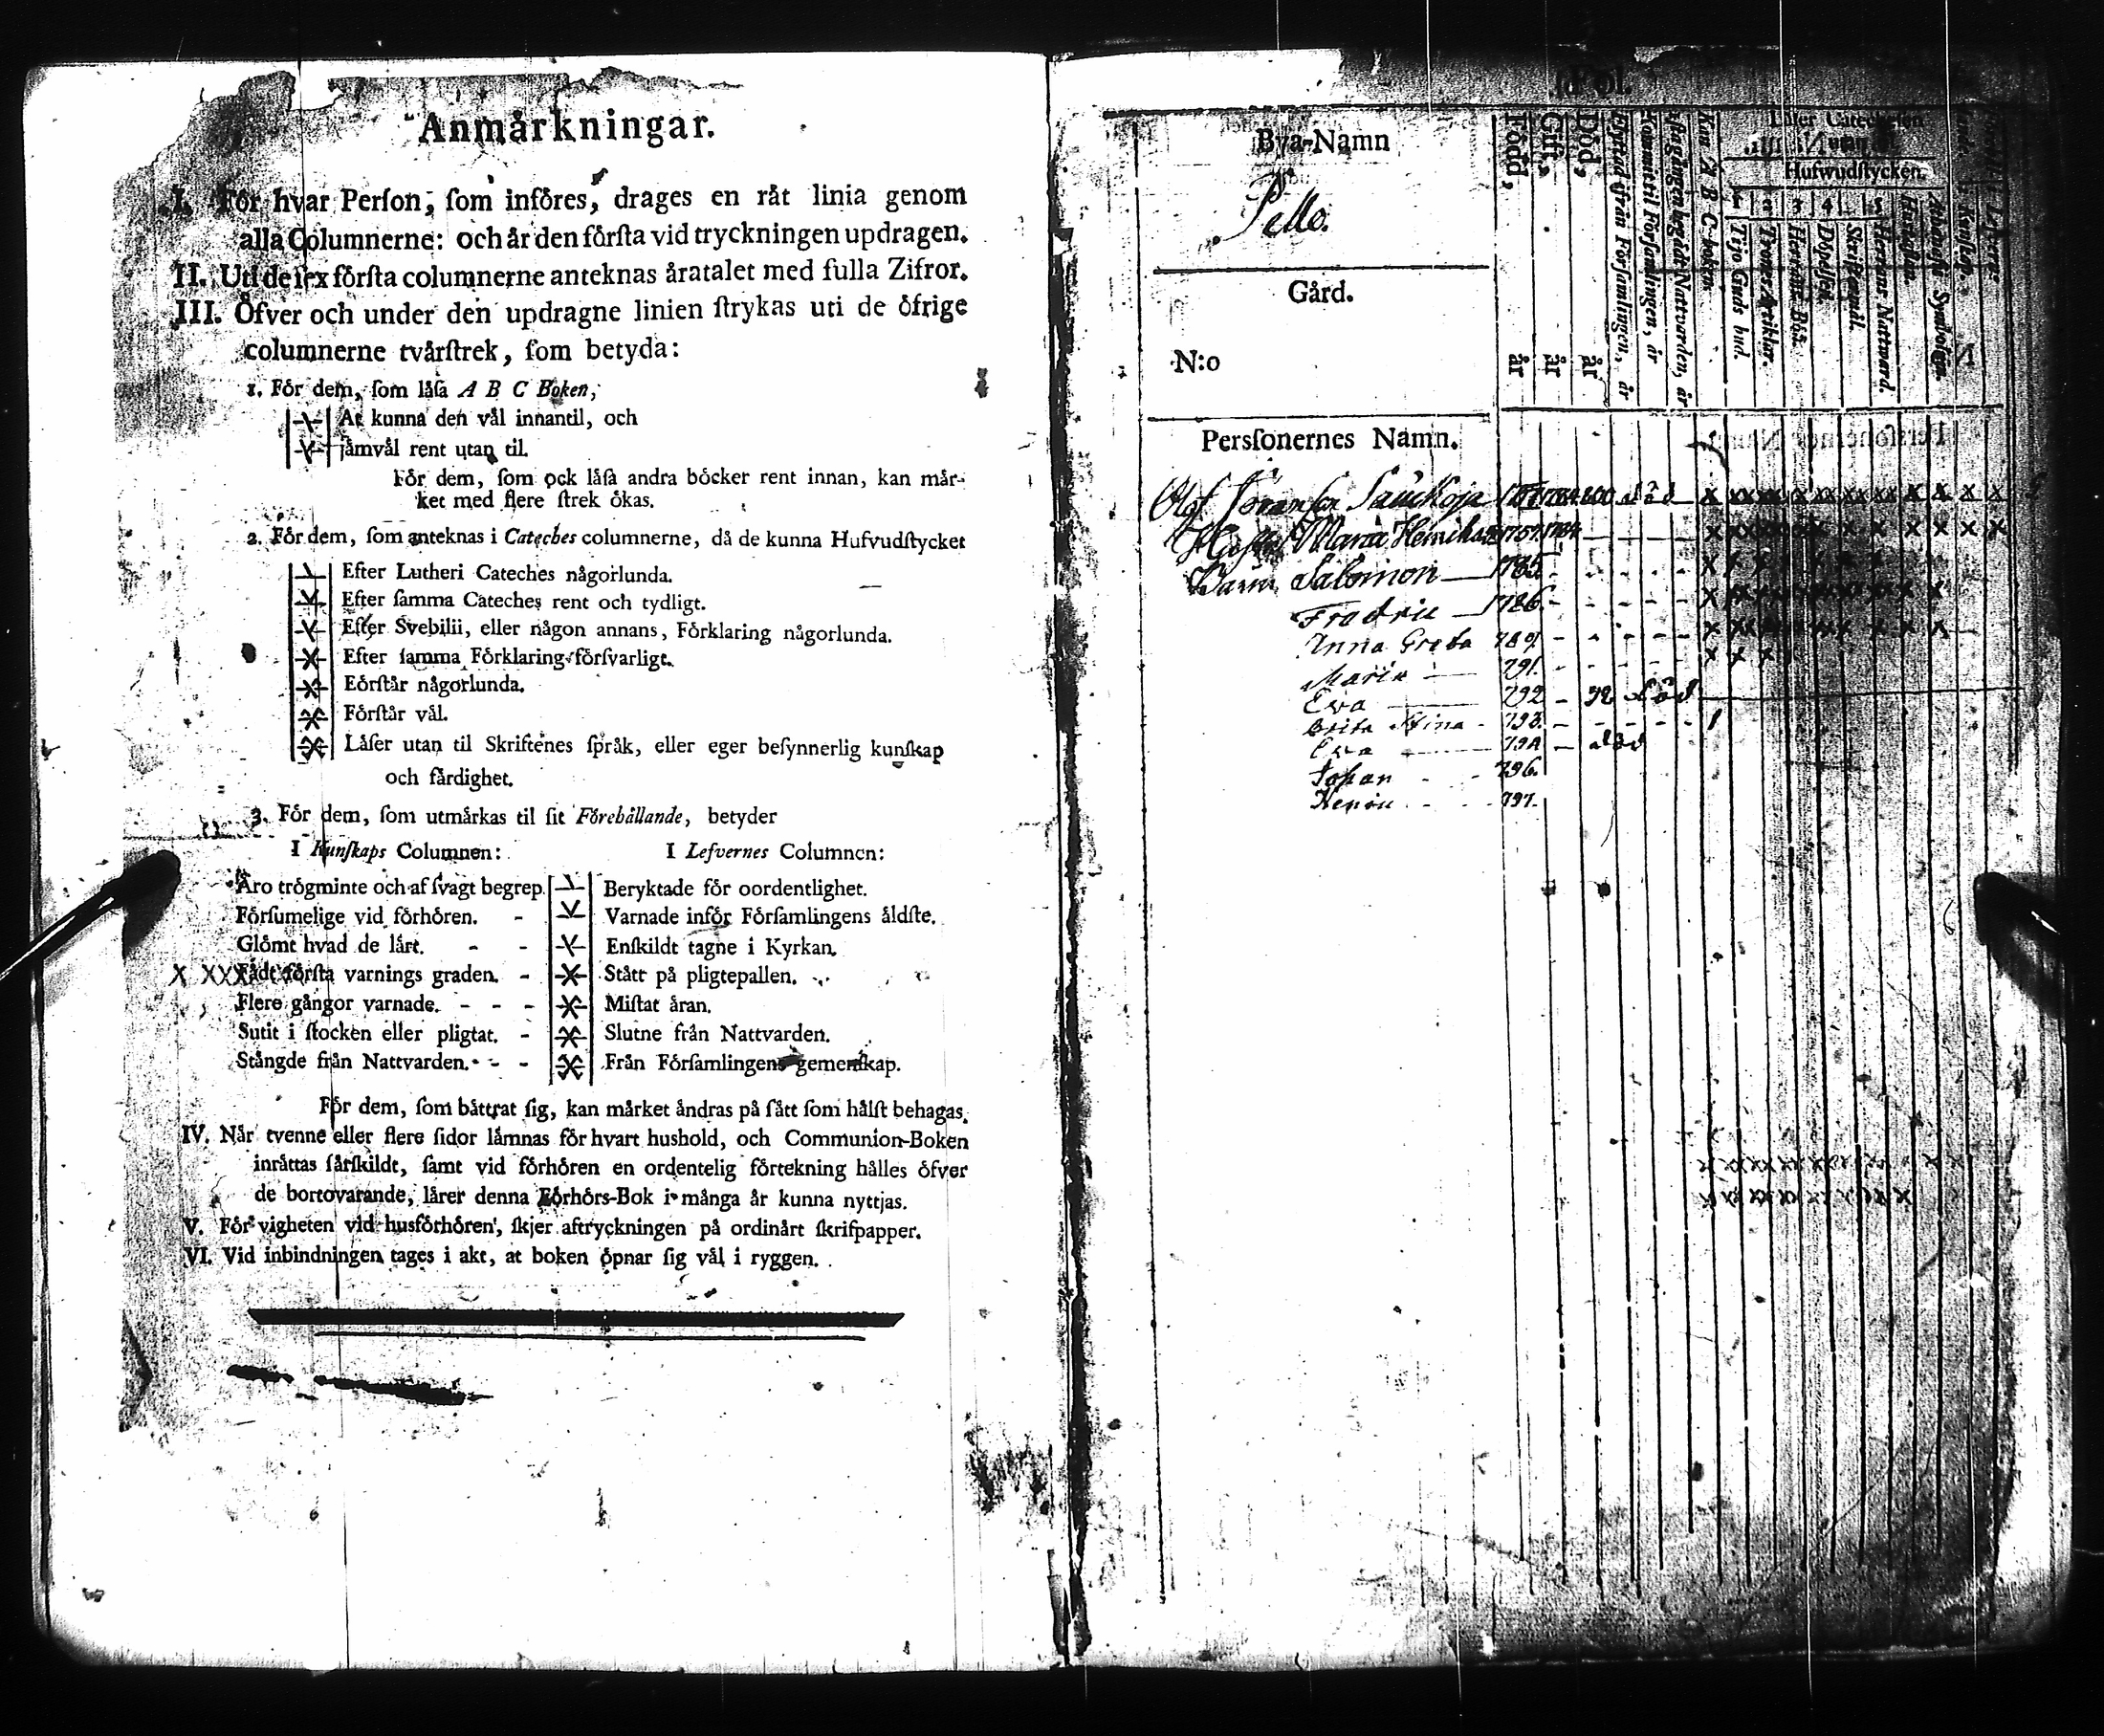 Anmårkningar.
I. Fór hvar Perſon, ſom infóres, drages en råt linia genom
alla Columnerne: och år den fórſta vid tryckningen updragen.
II. Uti de ſex fórſta columnerne anteknas åratalet med fulla Zifror.
III. Öfver och under den updragne linien ſtrykas uti de ófrige
columnerne tvårſtrek, ſom betyda:
1. Fór dem, ſom låſa A B C Boken,
At kunna den vål innantil, och
jåmvål rent utan til.
Fór dem, ſom ock låſa andra bócker rent innan, kan mår-
ket med flere ſtrek ókas.
2. Fór dem, ſom anteknas i Cateches columnerne, då de kunna Hufvudſtycket
Efter Lutheri Cateches någorlunda.
Efter ſamma Cateches rent och tydligt.
Efter Svebilii, eller någon annans, Fórklaring någorlunda.
Efter ſamma Fórklaring fórſvarligt.
Fórſtår någorlunda.
Fórſtår vål.
Låſer utan til Skriftenes ſpråk, eller eger beſynnerlig kunſkap
och fårdighet.
3. Fór dem, ſom utmårkas til ſit Fórehållande, betyder
I Kunſkaps Columnen: I Lefvernes Columnen:
Åro trógminte och af ſvagt begrep. Beryktade fór oordentlighet.
Fórſumelige vid fórhóren. - Varnade infór Fórſamlingens åldſte.
Glómt hvad de lårt. - - Enſkildt tagne i Kyrkan.
X XXX Fådt fórſta varnings graden. - Stått på pligtepallen.
Flere gångor varnade. - - - Miſtat åran.
Sutit i ſtocken eller pligtat. - Slutne från Nattvarden.
Stångde från Nattvarden. - - Från Fórſamlingens gemenſkap.
Fór dem, ſom båttrat ſig, kan mårket åndras på ſått ſom hålſt behagas.
IV. Når tvenne eller flere ſidor låmnas fór hvart hushold, och Communion-Boken
inråttas ſårſkildt, ſamt vid fórhóren en ordentelig fórtekning hålles ófver
de bortovarande, lårer denna Fórhórs-Bok i många år kunna nyttjas.
V. Fór vigheten vid husfórhóren, ſkjer aftryckningen på ordinårt ſkrifpapper.
VI. Vid inbindningen tages i akt, at boken ópnar ſig vål i ryggen.
Fol.
Bya-Namn
Pello.
Gård.
N:o
Född, år
Gift, år
Död, år
Flyttad ifrån Förſamlingen, år
Kommit til Förſamlingen, år
Kan A B C-boken
Hufwudſtycken.
1 2 3 4 5
Tijo Guds bud.
Trones Artiklar.
Herrans Bön.
Döpelſen.
Skriftermål.
Herrans Nattvard.
Huſtaflan.
Athanaſii Symbolum.
Perſſonernes Namn.
Maria 1757 1784
Salomon 1785
Fredric 1786
Anna Greta 789
Maria 791
Eva 792 - 92 död
Brita Stina - 793
Eva 794 - död
Johan - - 796
Henric - - 797